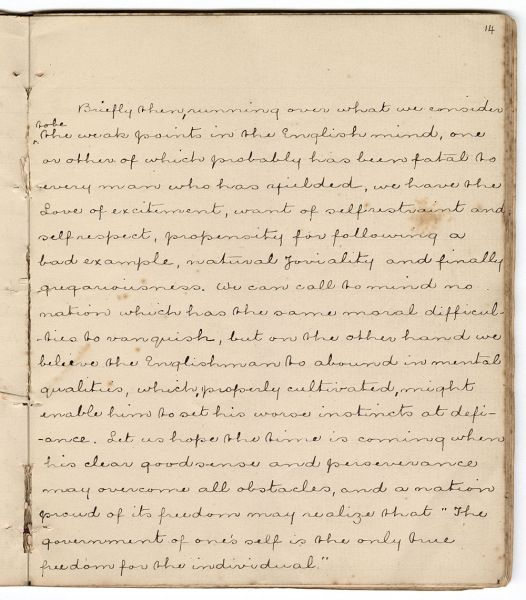 14
Briefly then, running over what we consider
to be
the weak points in the English mind, one
or other of which probably has been fatal to
every man who has yielded, we have the
Love of excitement, want of self restraint and
self respect, propensity for following a
bad example, natural Joviality and finally
gregariousness. We can call to mind no
nation which has the same moral difficul-
-ties to vanquish, but on the other hand we
believe the Englishman to abound in mental
qualities, which, properly cultivated, might
enable him to set his worse instincts at defi-
-ance. Let us hope the time is coming when
his clear good sense and perseverance
may overcome all obstacles, and a nation
proud of its freedom may realize that "The
government of one's self is the only true
freedom for the individual."